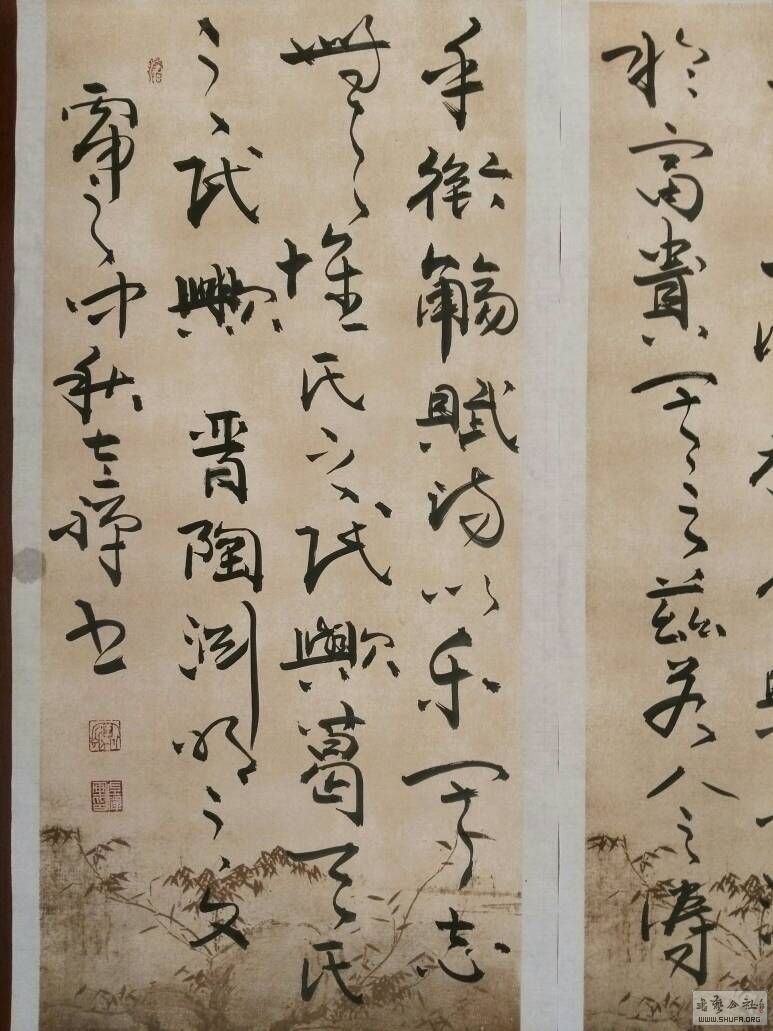 於富貴其言茲若人之儔
乎銜觴賦詩以樂其志
無懷氏之民歟葛天氏
之民歟 晉陶淵明之文
中秋书
书艺公社
WWW.SHUFA.ORG